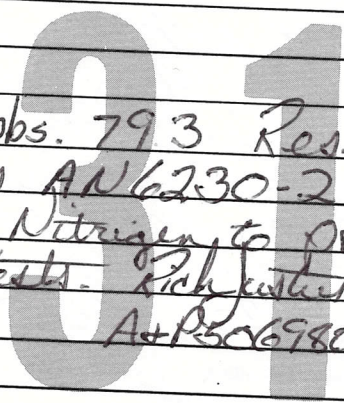 31
obs. 79.3 Res.
AN6230-2
Nitrigen to
Rich
A+P506982